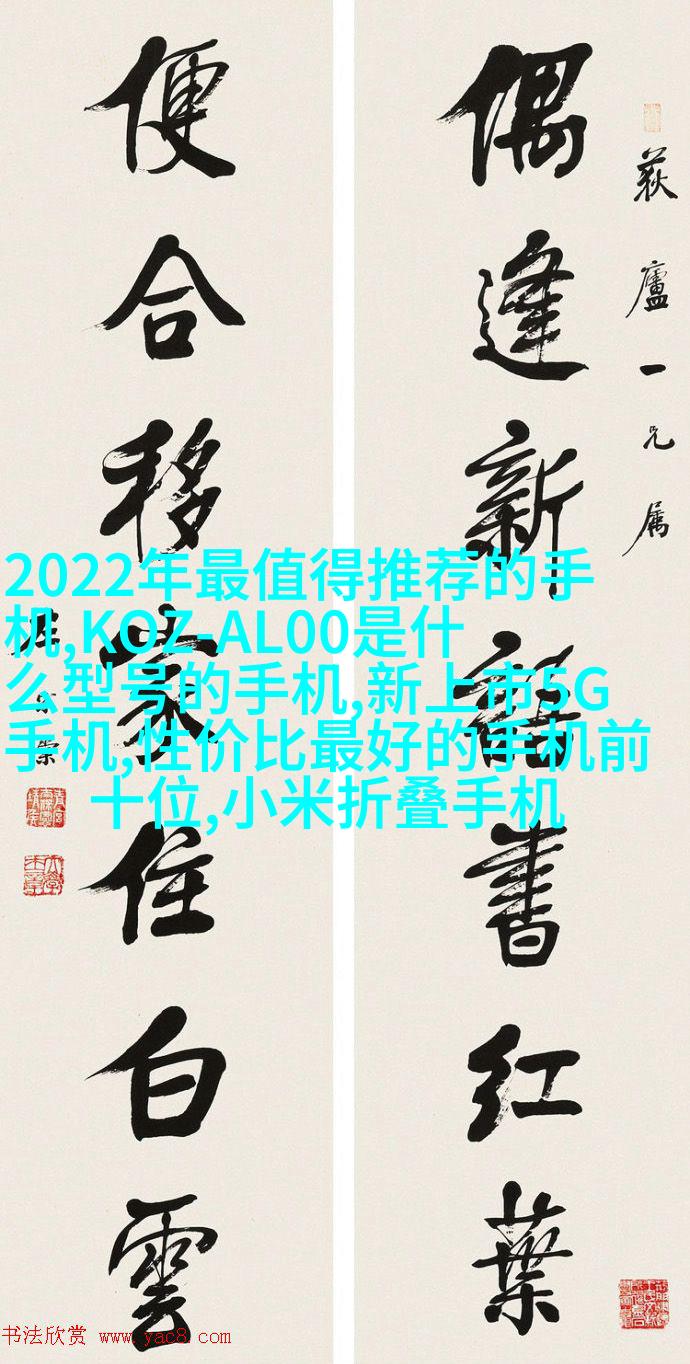 荻廬一兄屬
偶逢新語書紅葉
便合移家住白雲
2022年最值得推荐的手
机,KOZ-AL00是什
么型号的手机,新上市5G
手机,性价比最好的手机前
十位,小米折叠手机
书法欣赏 www.yac8.com